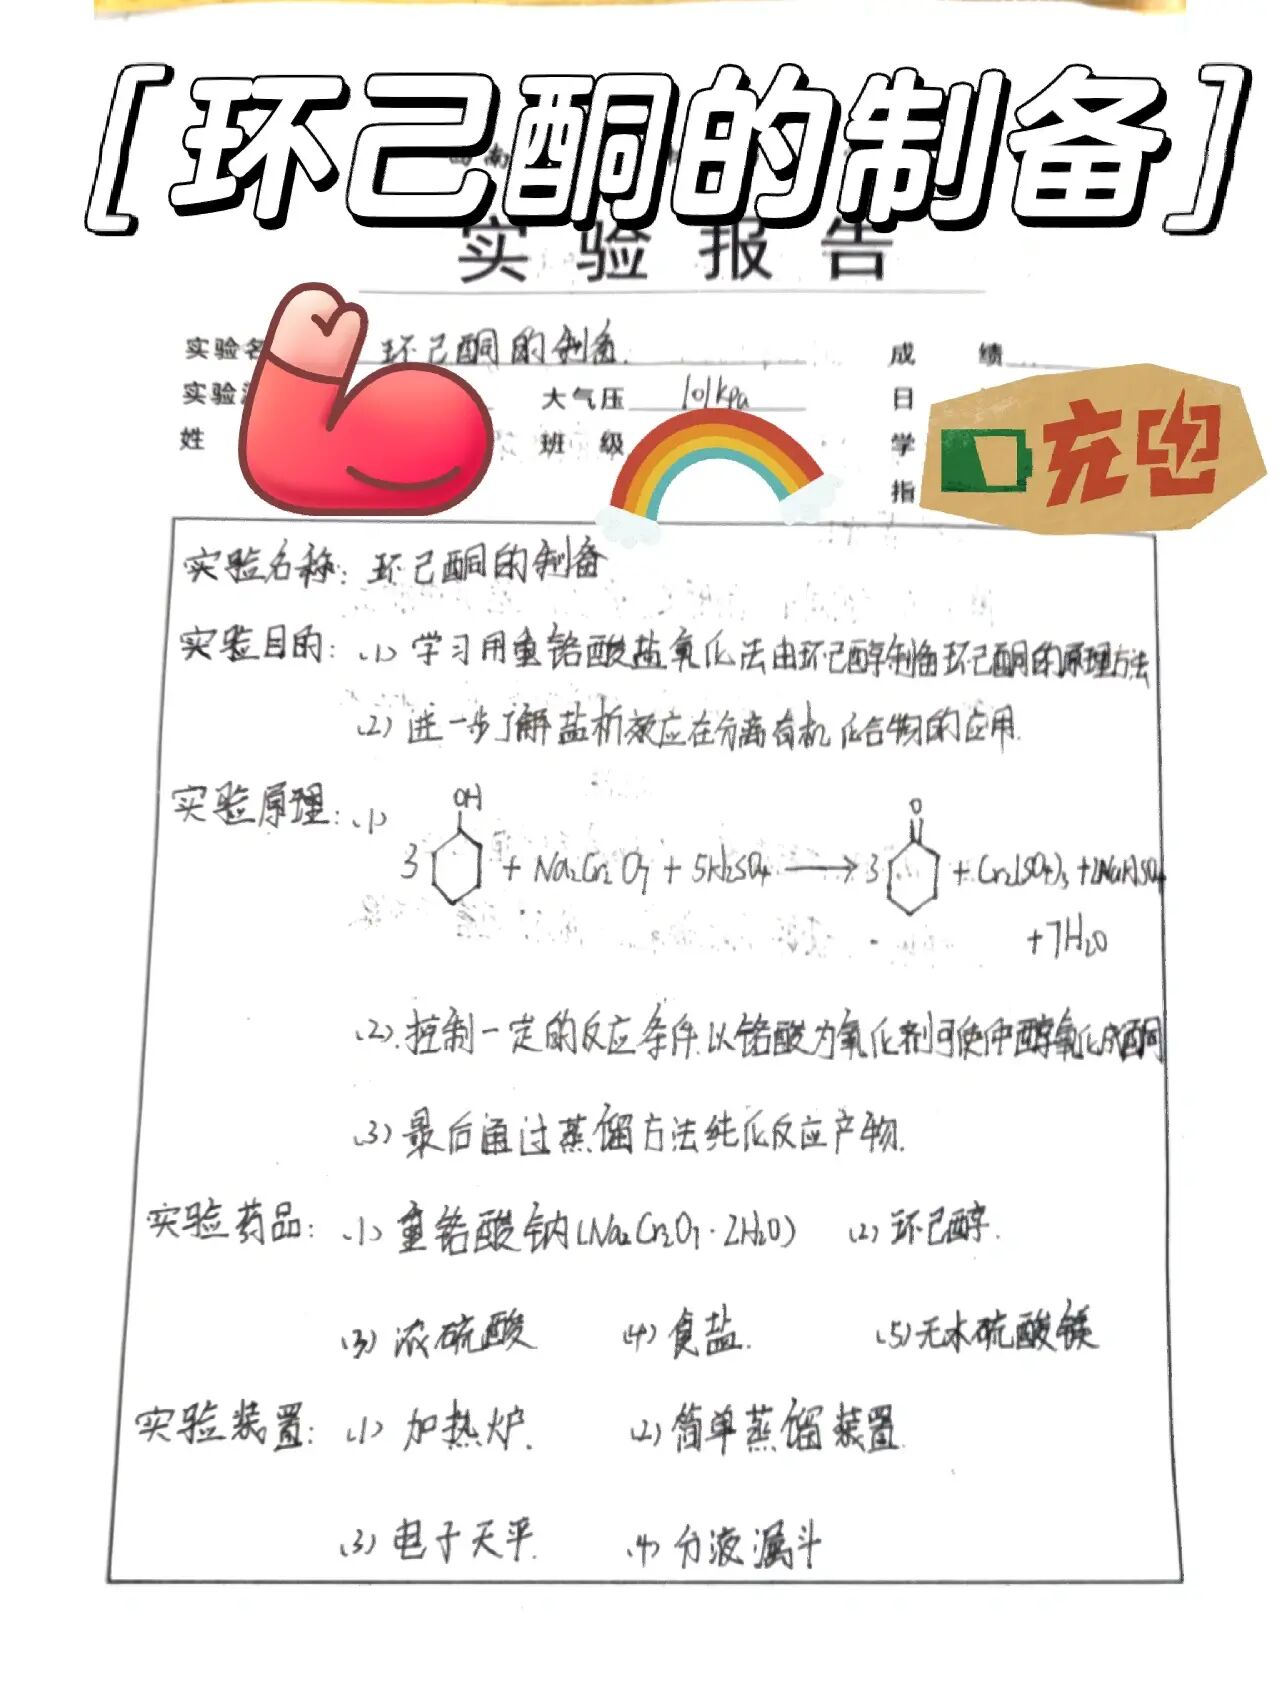 [环己酮的制备]
实验报告
实验名 环己酮的制备. 成 绩
实验 大气压 101kpa 日
姓 班 级 学
指
充电
实验名称: 环己酮的制备
实验目的: (1) 学习用重铬酸盐氧化法由环己醇制备环己酮的原理方法
(2) 进一步了解盐析效应在分离有机化合物的应用.
实验原理: (1)
OH O
3 + Na2Cr2O7 + 5H2SO4 → 3 + Cr2(SO4)3 + 2NaHSO4
+7H2O
(2).控制一定的反应条件.以铬酸为氧化剂可使仲醇氧化成酮
(3) 最后通过蒸馏方法纯化反应产物.
实验药品: (1) 重铬酸钠(Na2Cr2O7·2H2O) (2) 环己醇.
(3) 浓硫酸 (4) 食盐. (5) 无水硫酸镁
实验装置: (1) 加热炉. (2) 简单蒸馏装置.
(3) 电子天平. (4) 分液漏斗